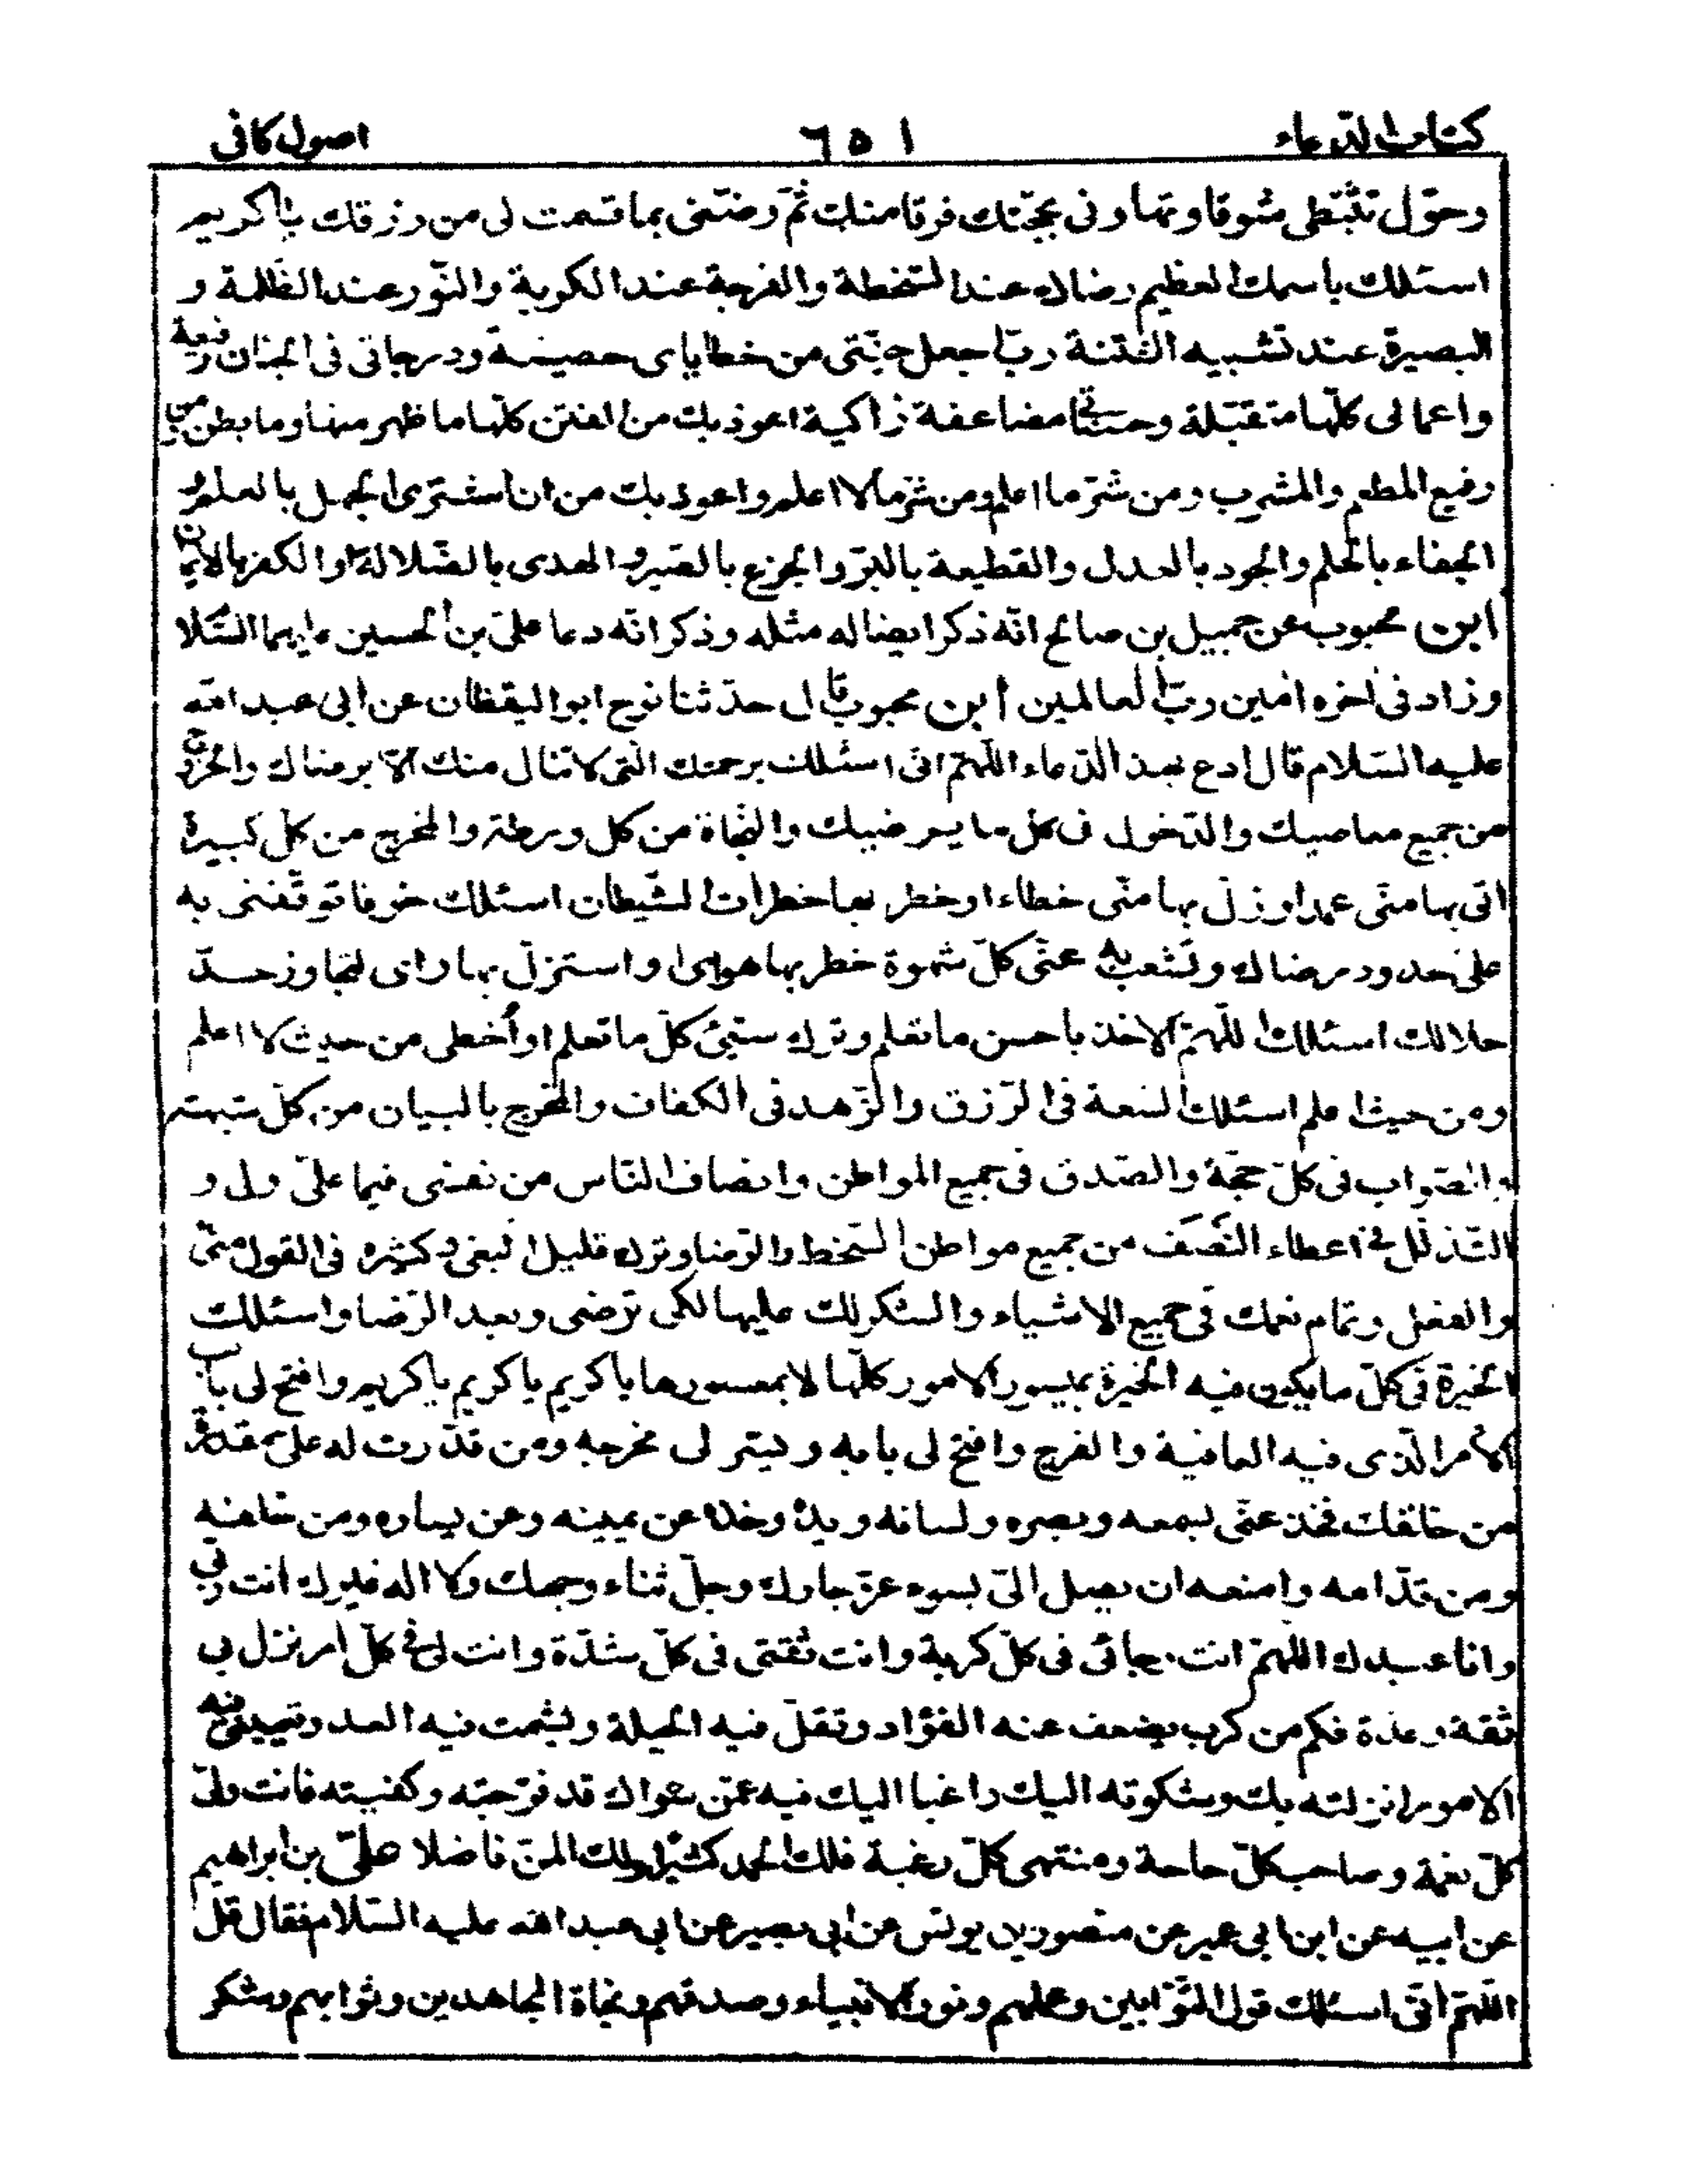 كتاب الدعاء ٦٥١ اصول كافى
وحوّل تثبّطى شوقا وتهاونى بحجّتك فرقا منك ثمّ رضّنى بما قسمت لى من رزقك يا كريم
اسئلك باسمك العظيم رضاك عند السّخطة والفرجة عند الكربة والنّور عند الظّلمة و
البصيرة عند تشبيه الفتنة ربّ اجعل جنّتى من خطاياى حصينة ودرجاتى فى الجنان رفيعة
واعمالى كلّها متقبّلة وحسناتى مضاعفة زاكية اعوذ بك من الفتن كلّها ما ظهر منها وما بطن من
رفيع المطعم والمشرب ومن شرّ ما اعلم ومن شرّ ما لا اعلم واعوذ بك من ان اشترى الجهل بالعلم و
الجفاء بالحلم والجور بالعدل والقطيعة بالبرّ والجزع بالصّبر والهدى بالضّلالة او الكفر بالايمان
ابن محبوب عن جميل بن صالح انّه ذكر ايضا له مثله وذكر انّه دعا علىّ بن الحسين عليهما السّلا
وزاد فى اخره امين ربّ العالمين ابن محبوب قال حدّثنا نوح ابو اليقظان عن ابى عبد الله
عليه السّلام قال ادع بهذا الدّعاء اللّهمّ انّى اسئلك برحمتك الّتى لا تنال منك الّا برضاك والخروج
من جميع معاصيك والدّخول فى كلّ ما يرضيك والنّجاة من كلّ ورطة والمخرج من كلّ كبيرة
اتى بها منّى عمد او زلّ بها منّى خطاء او خطر بها خطرات الشّيطان اسئلك خوفا توقفنى به
على حدود رضاك وتشعب به عنّى كلّ شهوة خطر بها هواى واستزلّ بها رائى ليجاوز حدّ
حلالك اسئلك اللّهمّ الاخذ باحسن ما تعلم وترك سيّئ كلّ ما تعلم او اخطى من حيث لا اعلم
ومن حيث اعلم اسئلك السّعة فى الرّزق والزّهد فى الكفاف والمخرج بالبيان من كلّ شبهة
والصّواب فى كلّ حجّة والصّدق فى جميع المواطن وانصاف النّاس من نفسى فيما علىّ ولى و
التّذلّل فى اعطاء النَّصَف من جميع مواطن السّخط والرّضا وترك قليل البغى وكثيره فى القول منّى
والفعل وتمام نعمك فى جميع الاشياء والشّكر لك عليها لكى ترضى وبعد الرّضا واسئلك
الخيرة فى كلّ ما يكون فيه الخيرة بميسور الامور كلّها لا بمعسورها يا كريم يا كريم يا كريم وافتح لى باب
الامر الّذى فيه العافية والفرج وافتح لى بابه ويسّر لى مخرجه ومن قدّرت له علىّ مقدرة
من خلقك فخذ عنّى بسمعه وبصره ولسانه ويده وخذه عن يمينه وعن يساره ومن خلفه
ومن قدّامه وامنعه ان يصل الىّ بسوء عزّ جارك وجلّ ثناء وجهك ولا اله غيرك انت ربّى
وانا عبدك اللّهمّ انت رجائى فى كلّ كربة وانت ثقتى فى كلّ شدّة وانت لى فى كلّ امر نزل بى
ثقة وعدّة فكم من كرب يضعف عنه الفؤاد وتقلّ فيه الحيلة ويشمت فيه العدو وتعيينى فيه
الامور انزلته بك وشكوته اليك راغبا اليك فيه عمّن سواك قد فرّجته وكفيته فانت ولىّ
كلّ نعمة وصاحب كلّ حاجة ومنتهى كلّ رغبة فلك الحمد كثيرا ولك المنّ فاضلا علىّ بن ابراهيم
عن ابيه عن ابن ابى عمير عن منصور بن يونس عن ابى بصير عن ابى عبد الله عليه السّلام فقال قل
اللّهمّ انّى اسئلك قول التّوّابين وعملهم ونور الانبياء وصدقهم ونجاة المجاهدين وثوابهم وشكر